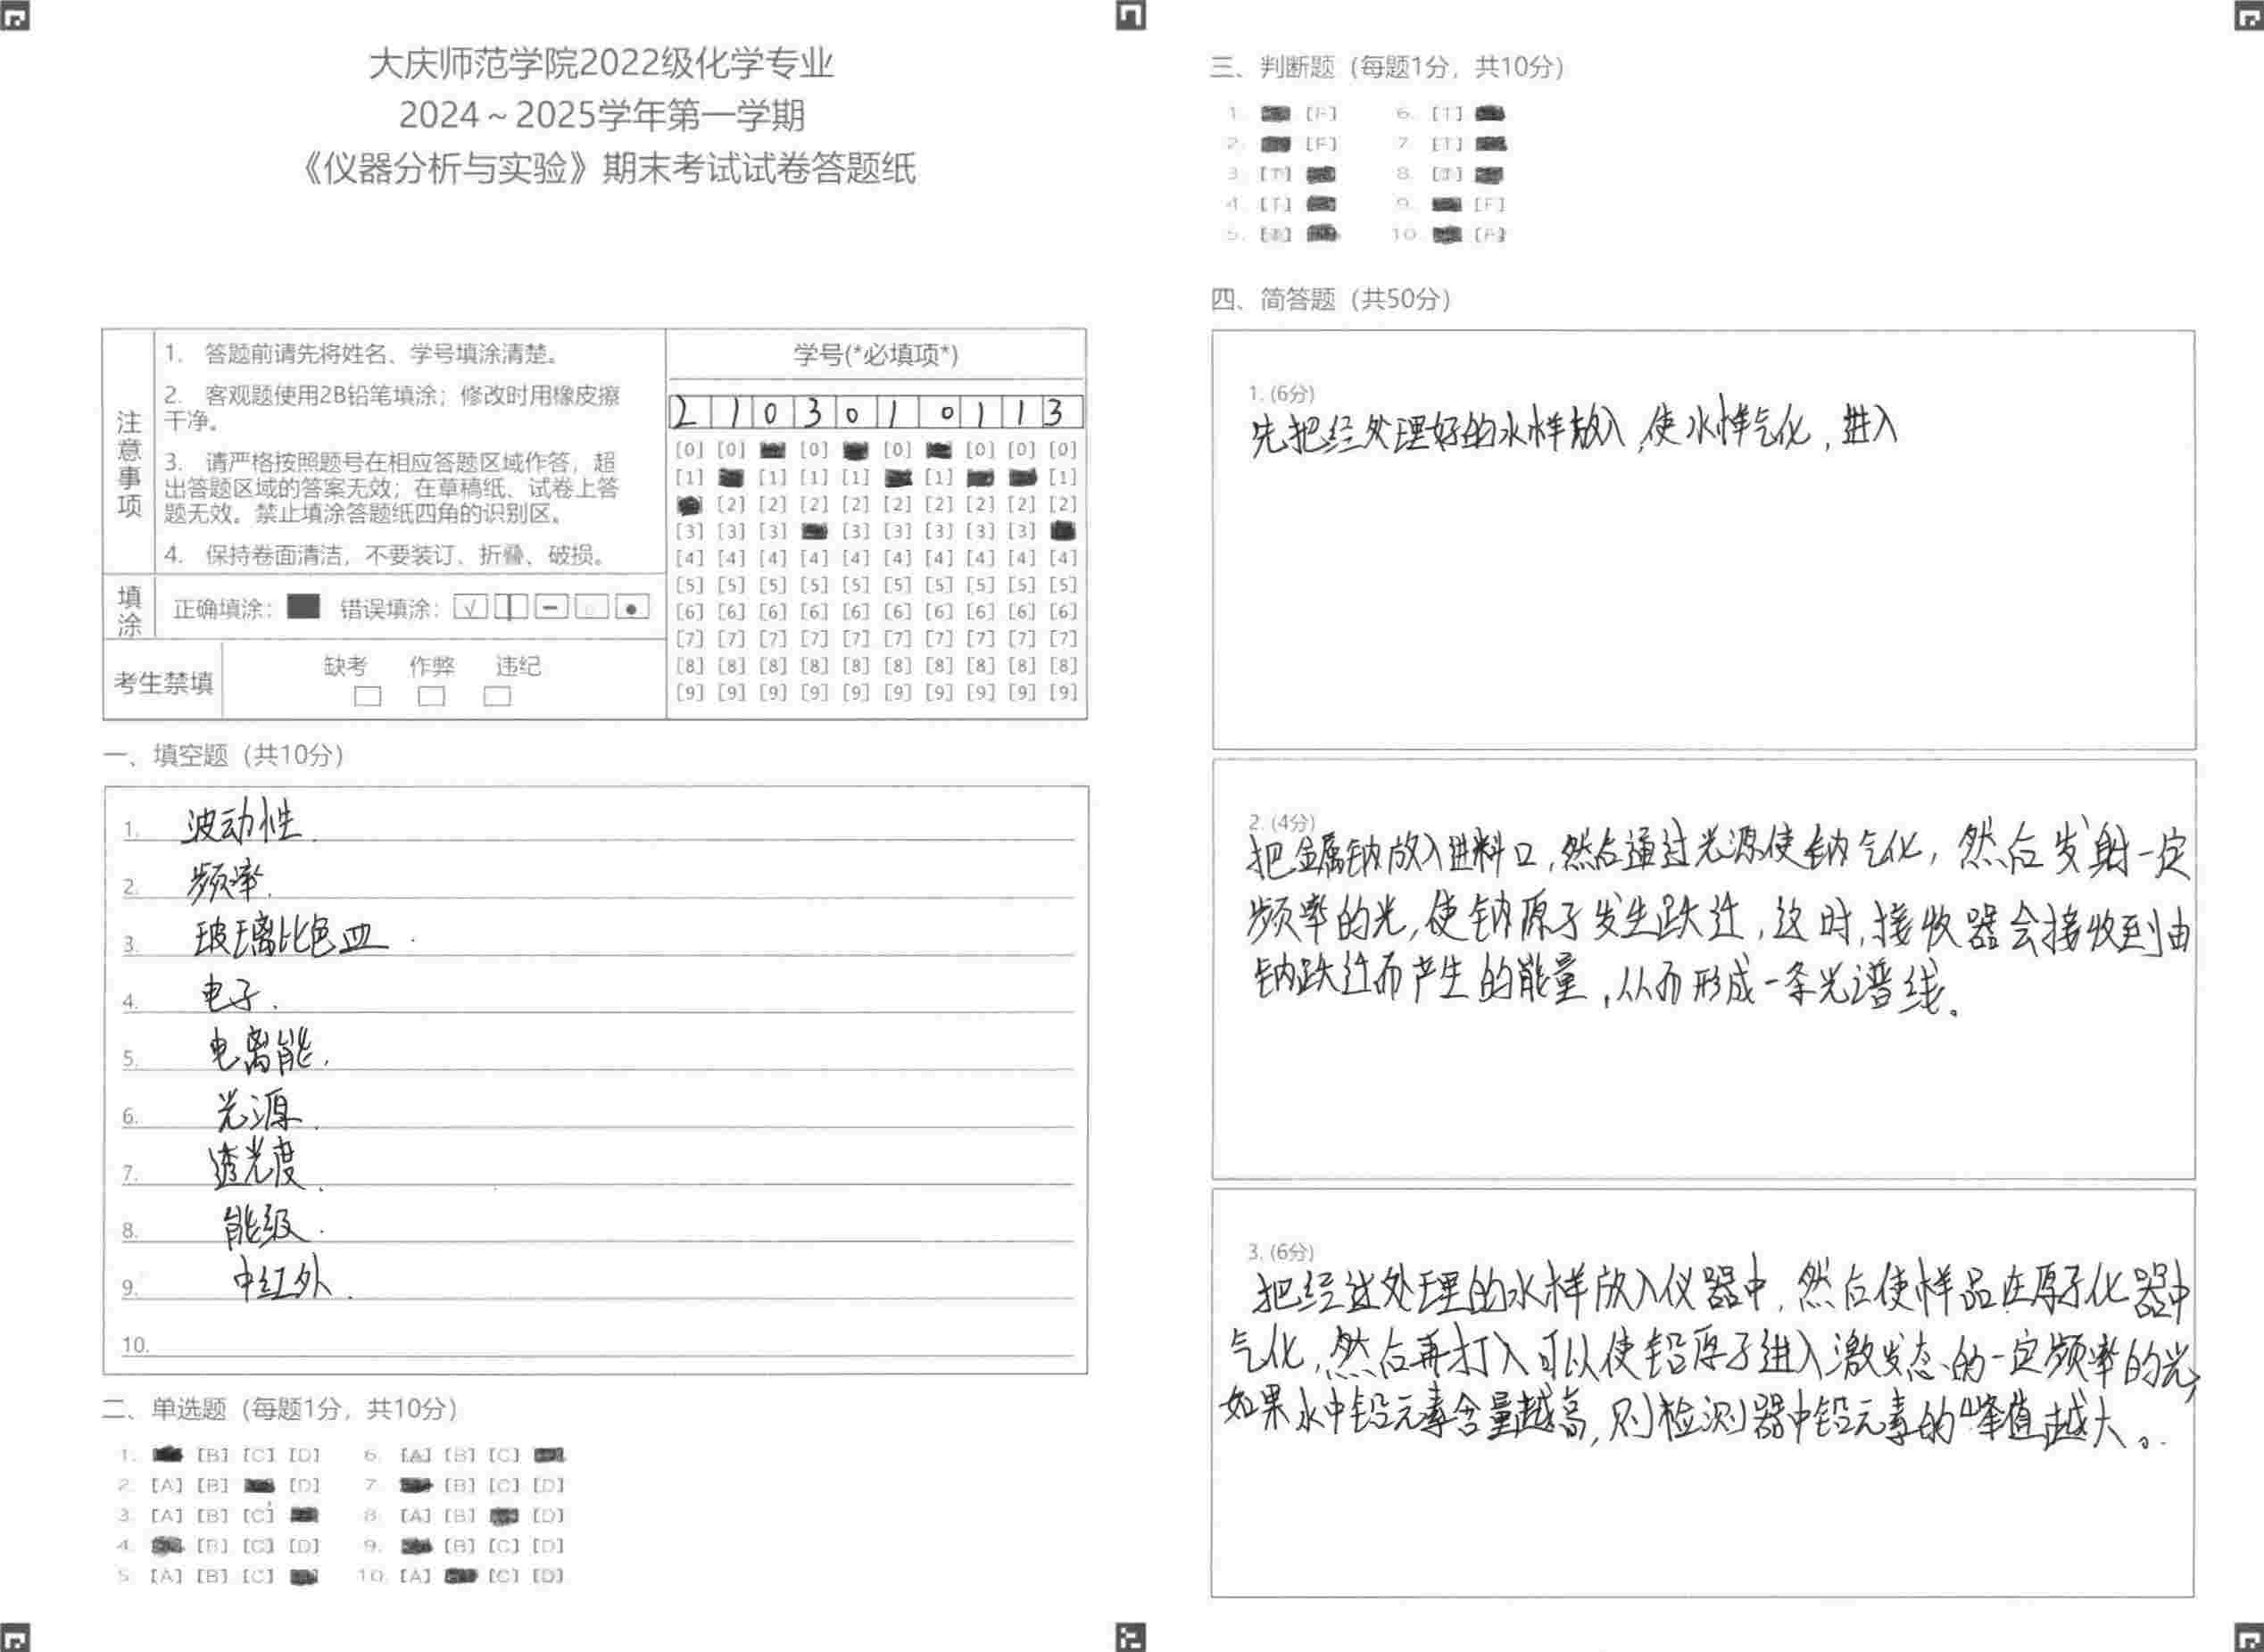 大庆师范学院2022级化学专业
2024～2025学年第一学期
《仪器分析与实验》期末考试试卷答题纸
注意事项
1. 答题前请先将姓名、学号填涂清楚。
2. 客观题使用2B铅笔填涂；修改时用橡皮擦
干净。
3. 请严格按照题号在相应答题区域作答，超
出答题区域的答案无效；在草稿纸、试卷上答
题无效。禁止填涂答题纸四角的识别区。
4. 保持卷面清洁，不要装订、折叠、破损。
填涂
正确填涂： 错误填涂：
考生禁填
缺考 作弊 违纪
学号(*必填项*)
2 1 0 3 0 1 0 1 1 3
[0] [0] [0] [0] [0] [0] [0]
[1] [1] [1] [1] [1] [1]
[2] [2] [2] [2] [2] [2] [2] [2] [2]
[3] [3] [3] [3] [3] [3] [3] [3]
[4] [4] [4] [4] [4] [4] [4] [4] [4] [4]
[5] [5] [5] [5] [5] [5] [5] [5] [5] [5]
[6] [6] [6] [6] [6] [6] [6] [6] [6] [6]
[7] [7] [7] [7] [7] [7] [7] [7] [7] [7]
[8] [8] [8] [8] [8] [8] [8] [8] [8] [8]
[9] [9] [9] [9] [9] [9] [9] [9] [9] [9]
一、填空题（共10分）
1. 波动性.
2. 频率.
3. 玻璃比色皿.
4. 电子.
5. 电离能.
6. 光源.
7. 透光度.
8. 能级.
9. 中红外.
10.
二、单选题（每题1分，共10分）
1. [B] [C] [D] 6. [A] [B] [C]
2. [A] [B] [D] 7. [B] [C] [D]
3. [A] [B] [C] 8. [A] [B] [D]
4. [B] [C] [D] 9. [B] [C] [D]
5. [A] [B] [C] 10. [A] [C] [D]
三、判断题（每题1分，共10分）
1. [F] 6. [T]
2. [F] 7. [T]
3. [T] 8. [T]
4. [T] 9. [F]
5. [T] 10. [F]
四、简答题（共50分）
1. (6分)
先把经处理好的水样放入,使水样气化,进入
2. (4分)
把金属钠放入进料口,然后通过光源使钠气化,然后发射一定
频率的光,使钠原子发生跃迁,这时,接收器会接收到由
钠跃迁而产生的能量,从而形成一条光谱线。
3. (6分)
把经过处理的水样放入仪器中,然后使样品在原子化器中
气化,然后再打入可以使铅原子进入激发态的一定频率的光,
如果水中铅元素含量越高,则检测器中铅元素的峰值越大。